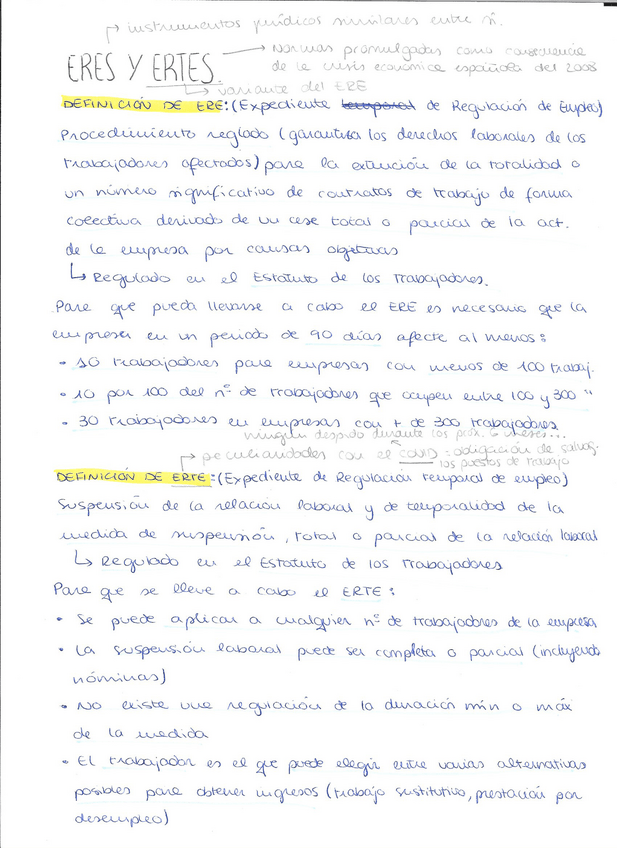 instrumentos jurídicos similares entre sí.
ERES Y ERTES
Normas promulgadas como consecuencia
de la crisis económica española del 2008
variante del ERE
DEFINICIÓN DE ERE: (Expediente temporal de Regulación de Empleo)
Procedimiento reglado (garantiza los derechos laborales de los
trabajadores afectados) para la extinción de la totalidad o
un número significativo de contratos de trabajo de forma
colectiva derivado de un cese total o parcial de la act.
de la empresa por causas objetivas
Regulado en el Estatuto de los Trabajadores.
Para que pueda llevarse a cabo el ERE es necesario que la
empresa en un periodo de 90 días afecte al menos:
• 10 trabajadores para empresas con menos de 100 trabaj.
• 10 por 100 del nº de trabajadores que ocupen entre 100 y 300 "
• 30 trabajadores en empresas con + de 300 trabajadores
ningún despido durante los próx. 6 meses...
peculiaridades con el COVID: obligación de salvag.
los puestos de trabajo
DEFINICIÓN DE ERTE: (Expediente de Regulación temporal de empleo)
Suspensión de la relación laboral y de temporalidad de la
medida de suspensión, total o parcial de la relación laboral
Regulado en el Estatuto de los Trabajadores
Para que se lleve a cabo el ERTE:
• Se puede aplicar a cualquier nº de trabajadores de la empresa
• La suspensión laboral puede ser completa o parcial (incluyendo
nóminas)
• No existe una regulación de la duración mín o máx
de la medida
• El trabajador es el que puede elegir entre varias alternativas
posibles para obtener ingresos (trabajo sustitutivo, prestación por
desempleo)